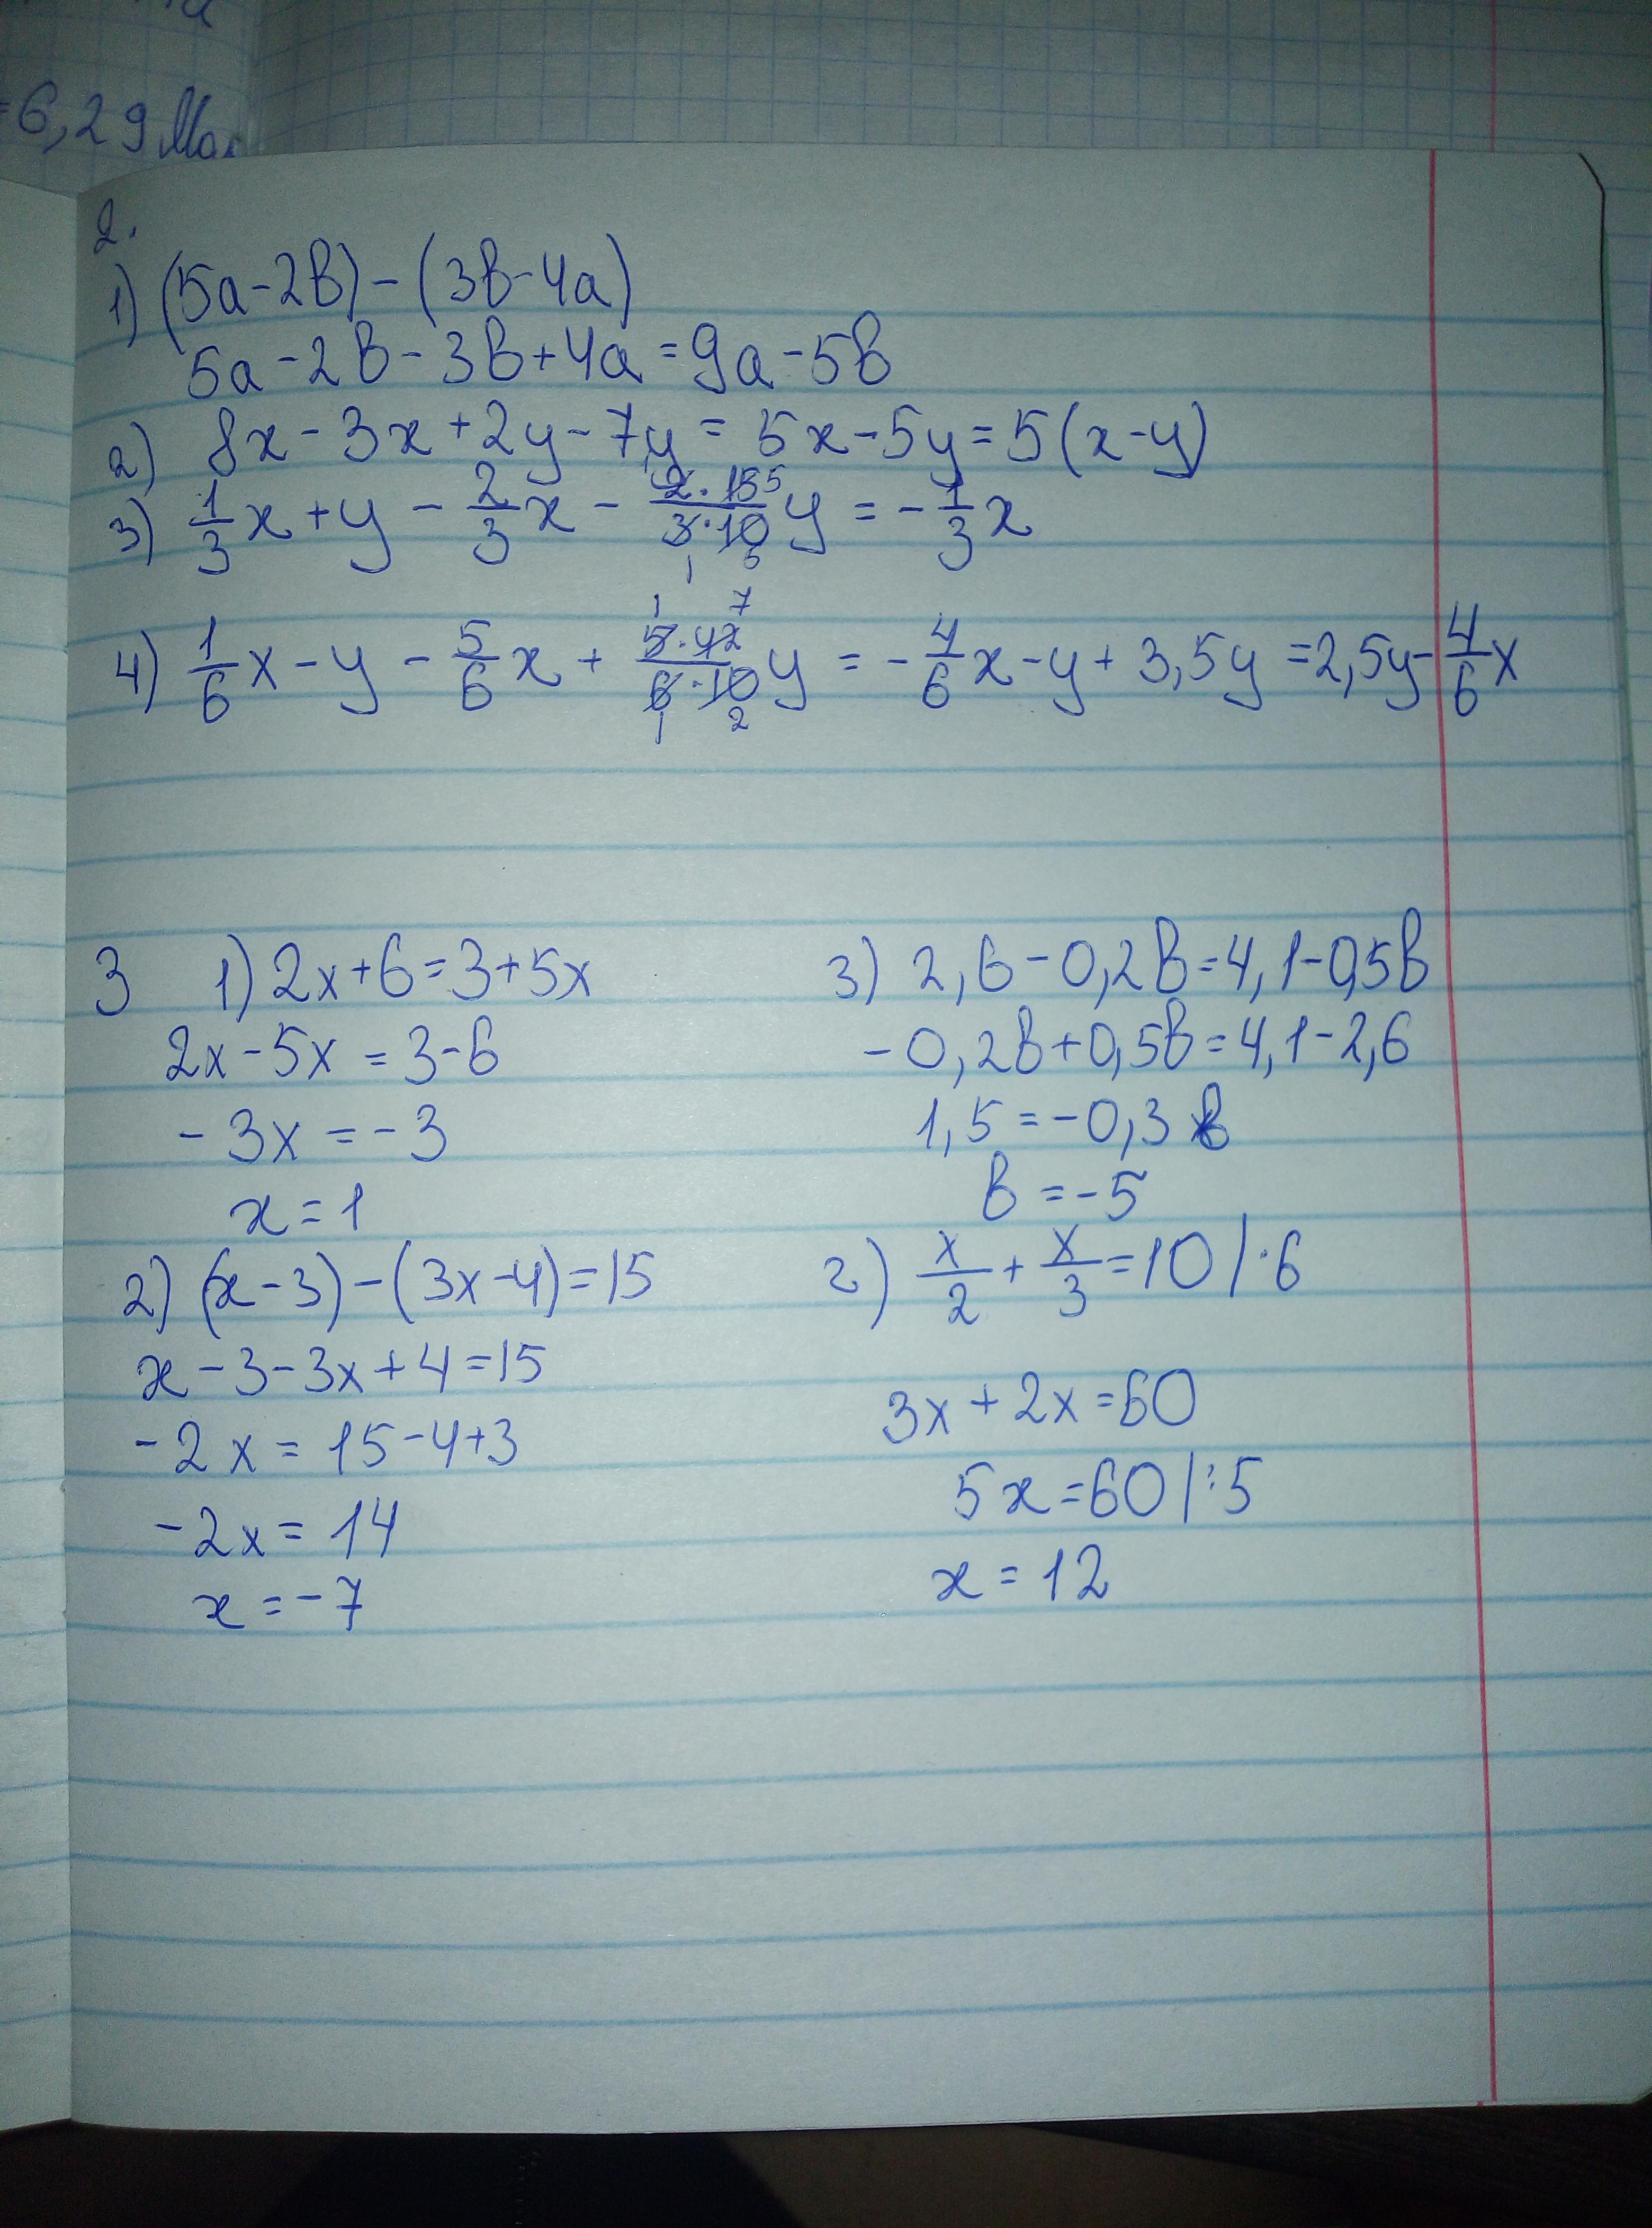 =6,29 Мол
2.
1) (5a-2b)-(3b-4a)
5a-2b-3b+4a=9a-5b
2) 8x-3x+2y-7y=5x-5y=5(x-y)
3) 1/3 x+y-2/3 x-(2·15)/(3·10) y=-1/3 x
4) 1/6 x-y-5/6 x+(5·42)/(6·10) y=-4/6 x-y+3,5y=2,5y-4/6 x
3 1) 2x+6=3+5x
2x-5x=3-6
-3x=-3
x=1
2) (x-3)-(3x-4)=15
x-3-3x+4=15
-2x=15-4+3
-2x=14
x=-7
3) 2,6-0,2b=4,1-0,5b
-0,2b+0,5b=4,1-2,6
1,5=-0,3b
b=-5
г) x/2+x/3=10 |·6
3x+2x=60
5x=60 |:5
x=12